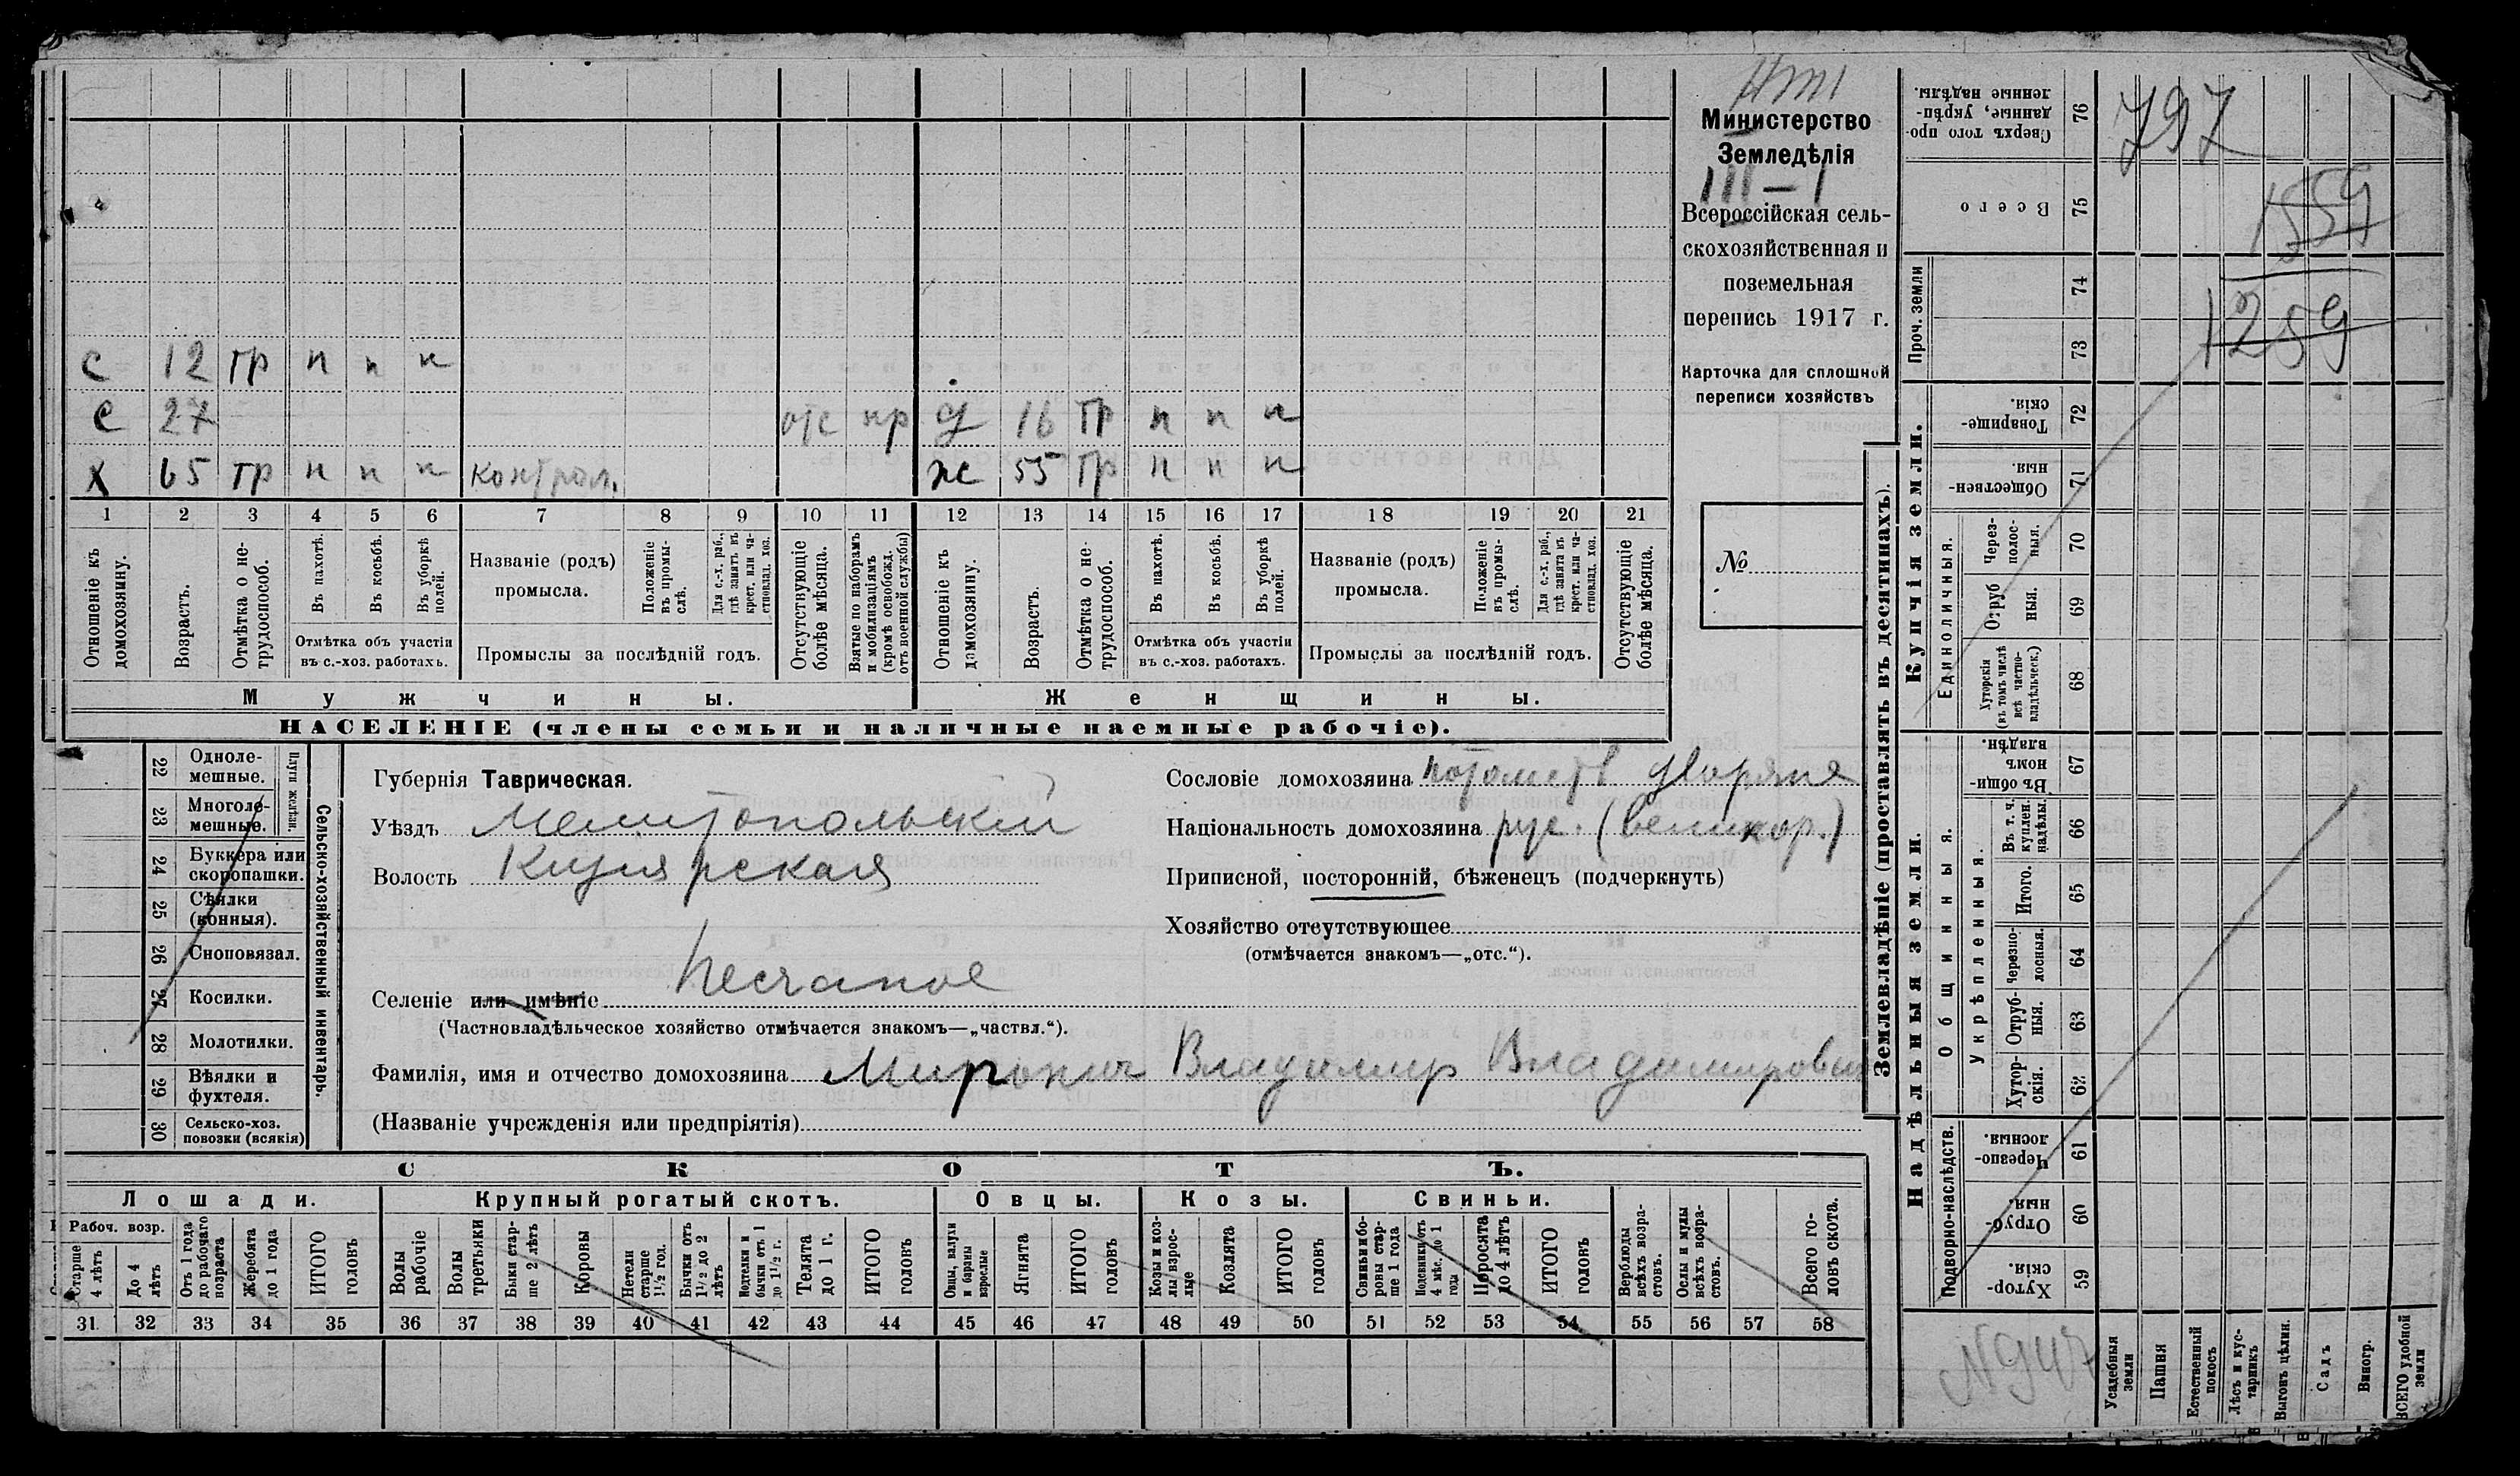 Министерство
Земледѣлія
III – I
Всероссійская сель-
скохозяйственная и
поземельная
перепись 1917 г.
Карточка для сплошной
переписи хозяйствъ
№
с 12 тр п п п
с 27 отс пр д 16 тр п п п
х 65 тр п п п контрол. ж 55 тр п п п
1 2 3 4 5 6 7 8 9 10 11 12 13 14 15 16 17 18 19 20 21
Отношеніе къ домохозяину.
Возрастъ.
Отмѣтка о не-трудоспособ.
Въ пахотѣ.
Въ косьбѣ.
Въ уборкѣ полей.
Отмѣтка объ участіи
въ с.-хоз. работахъ.
Названіе (родъ)
промысла.
Положеніе въ промы-слѣ.
Для с.-х. раб., гдѣ занятъ въ крест. или ча-стновлад. хоз.
Промыслы за послѣдній годъ.
Отсутствующіе болѣе мѣсяца.
Взятые по наборамъ и мобилизаціямъ (кромѣ освобожд. отъ военной службы)
Отношеніе къ домохозяину.
Возрастъ.
Отмѣтка о не-трудоспособ.
Въ пахотѣ.
Въ косьбѣ.
Въ уборкѣ полей.
Отмѣтка объ участіи
въ с.-хоз. работахъ.
Названіе (родъ)
промысла.
Положеніе въ промы-слѣ.
Для с.-х. раб., гдѣ занята въ крест. или ча-стновлад. хоз.
Промыслы за послѣдній годъ.
Отсутствующіе болѣе мѣсяца.
Мужчины. Женщины.
НАСЕЛЕНІЕ (члены семьи и наличные наемные рабочіе).
Сельско-хозяйственный инвентарь.
Плуги желѣзн.
22 Одноле-мешные.
23 Многоле-мешные.
24 Буккера или скоропашки.
25 Сѣялки (конныя).
26 Сноповязал.
27 Косилки.
28 Молотилки.
29 Вѣялки и фухтеля.
30 Сельско-хоз. повозки (всякія)
Губернія Таврическая.
Уѣздъ Мелитопольскій
Волость Кизиярская
Селеніе или имѣніе Песчаное
(Частновладѣльческое хозяйство отмѣчается знакомъ—„частвл.“).
Фамилія, имя и отчество домохозяина Миронич Владимир Владимирович
(Названіе учрежденія или предпріятія)
Сословіе домохозяина потомств дворяне
Національность домохозяина рус. (великор.)
Приписной, посторонній, бѣженецъ (подчеркнуть)
Хозяйство отсутствующее
(отмѣчается знакомъ—„отс.“).
СКОТЪ.
Лошади. Крупный рогатый скотъ. Овцы. Козы. Свиньи.
Рабоч. возр.
Старше 4 лѣтъ
До 4 лѣтъ
Отъ 1 года до рабочаго возраста
Жеребята до 1 года
ИТОГО головъ
Волы рабочіе
Волы третьяки
Быки стар-ше 2 лѣтъ
Коровы
Нетели старше 1½ год.
Бычки отъ 1½ до 2 лѣтъ
Нетелки и бычки отъ 1 до 1½ г.
Телята до 1 г.
ИТОГО головъ
Овцы, валухи и бараны взрослые
Ягнята
ИТОГО головъ
Козы и коз-лы взрос-лые
Козлята
ИТОГО головъ
Свиньи и бо-ровы стар-ше 1 года
Подсвинки отъ 4 мѣс. до 1 года
Поросята до 4 лѣтъ
ИТОГО головъ
Верблюды всѣхъ возра-стовъ.
Ослы и мулы всѣхъ возра-стовъ.
Всего го-ловъ скота.
31 32 33 34 35 36 37 38 39 40 41 42 43 44 45 46 47 48 49 50 51 52 53 54 55 56 57 58
Землевладѣніе (проставлять въ десятинахъ).
Сверхъ того про-данные, укрѣп-ленные надѣлы. 76
797
Всего 75
1559
1259
Проч. земли
74
73
Купчія земли.
Товарище-скія. 72
Обществен-ныя. 71
Единоличныя.
Через-полос-ныя. 70
Отруб ныя. 69
Хуторскія (въ томъ числѣ всѣ частно-владѣльческ.) 68
Надѣльныя земли.
Общинныя.
Въ общи-номъ владѣн. 67
Укрѣпленныя.
Въ т. ч. куплен. надѣлы. 66
Итого. 65
Черезпо-лосныя. 64
Отруб-ныя. 63
Хутор-скія. 62
Подворно-наслѣдств.
Черезпо-лосныя. 61
Отруб-ныя. 60
Хутор-скія. 59
N 947
Усадебныя земли
Пашня
Естественный покосъ
Лѣсъ и кус-тарникъ
Выгонъ цѣлин.
Садъ
Виногр.
ВСЕГО удобной земли